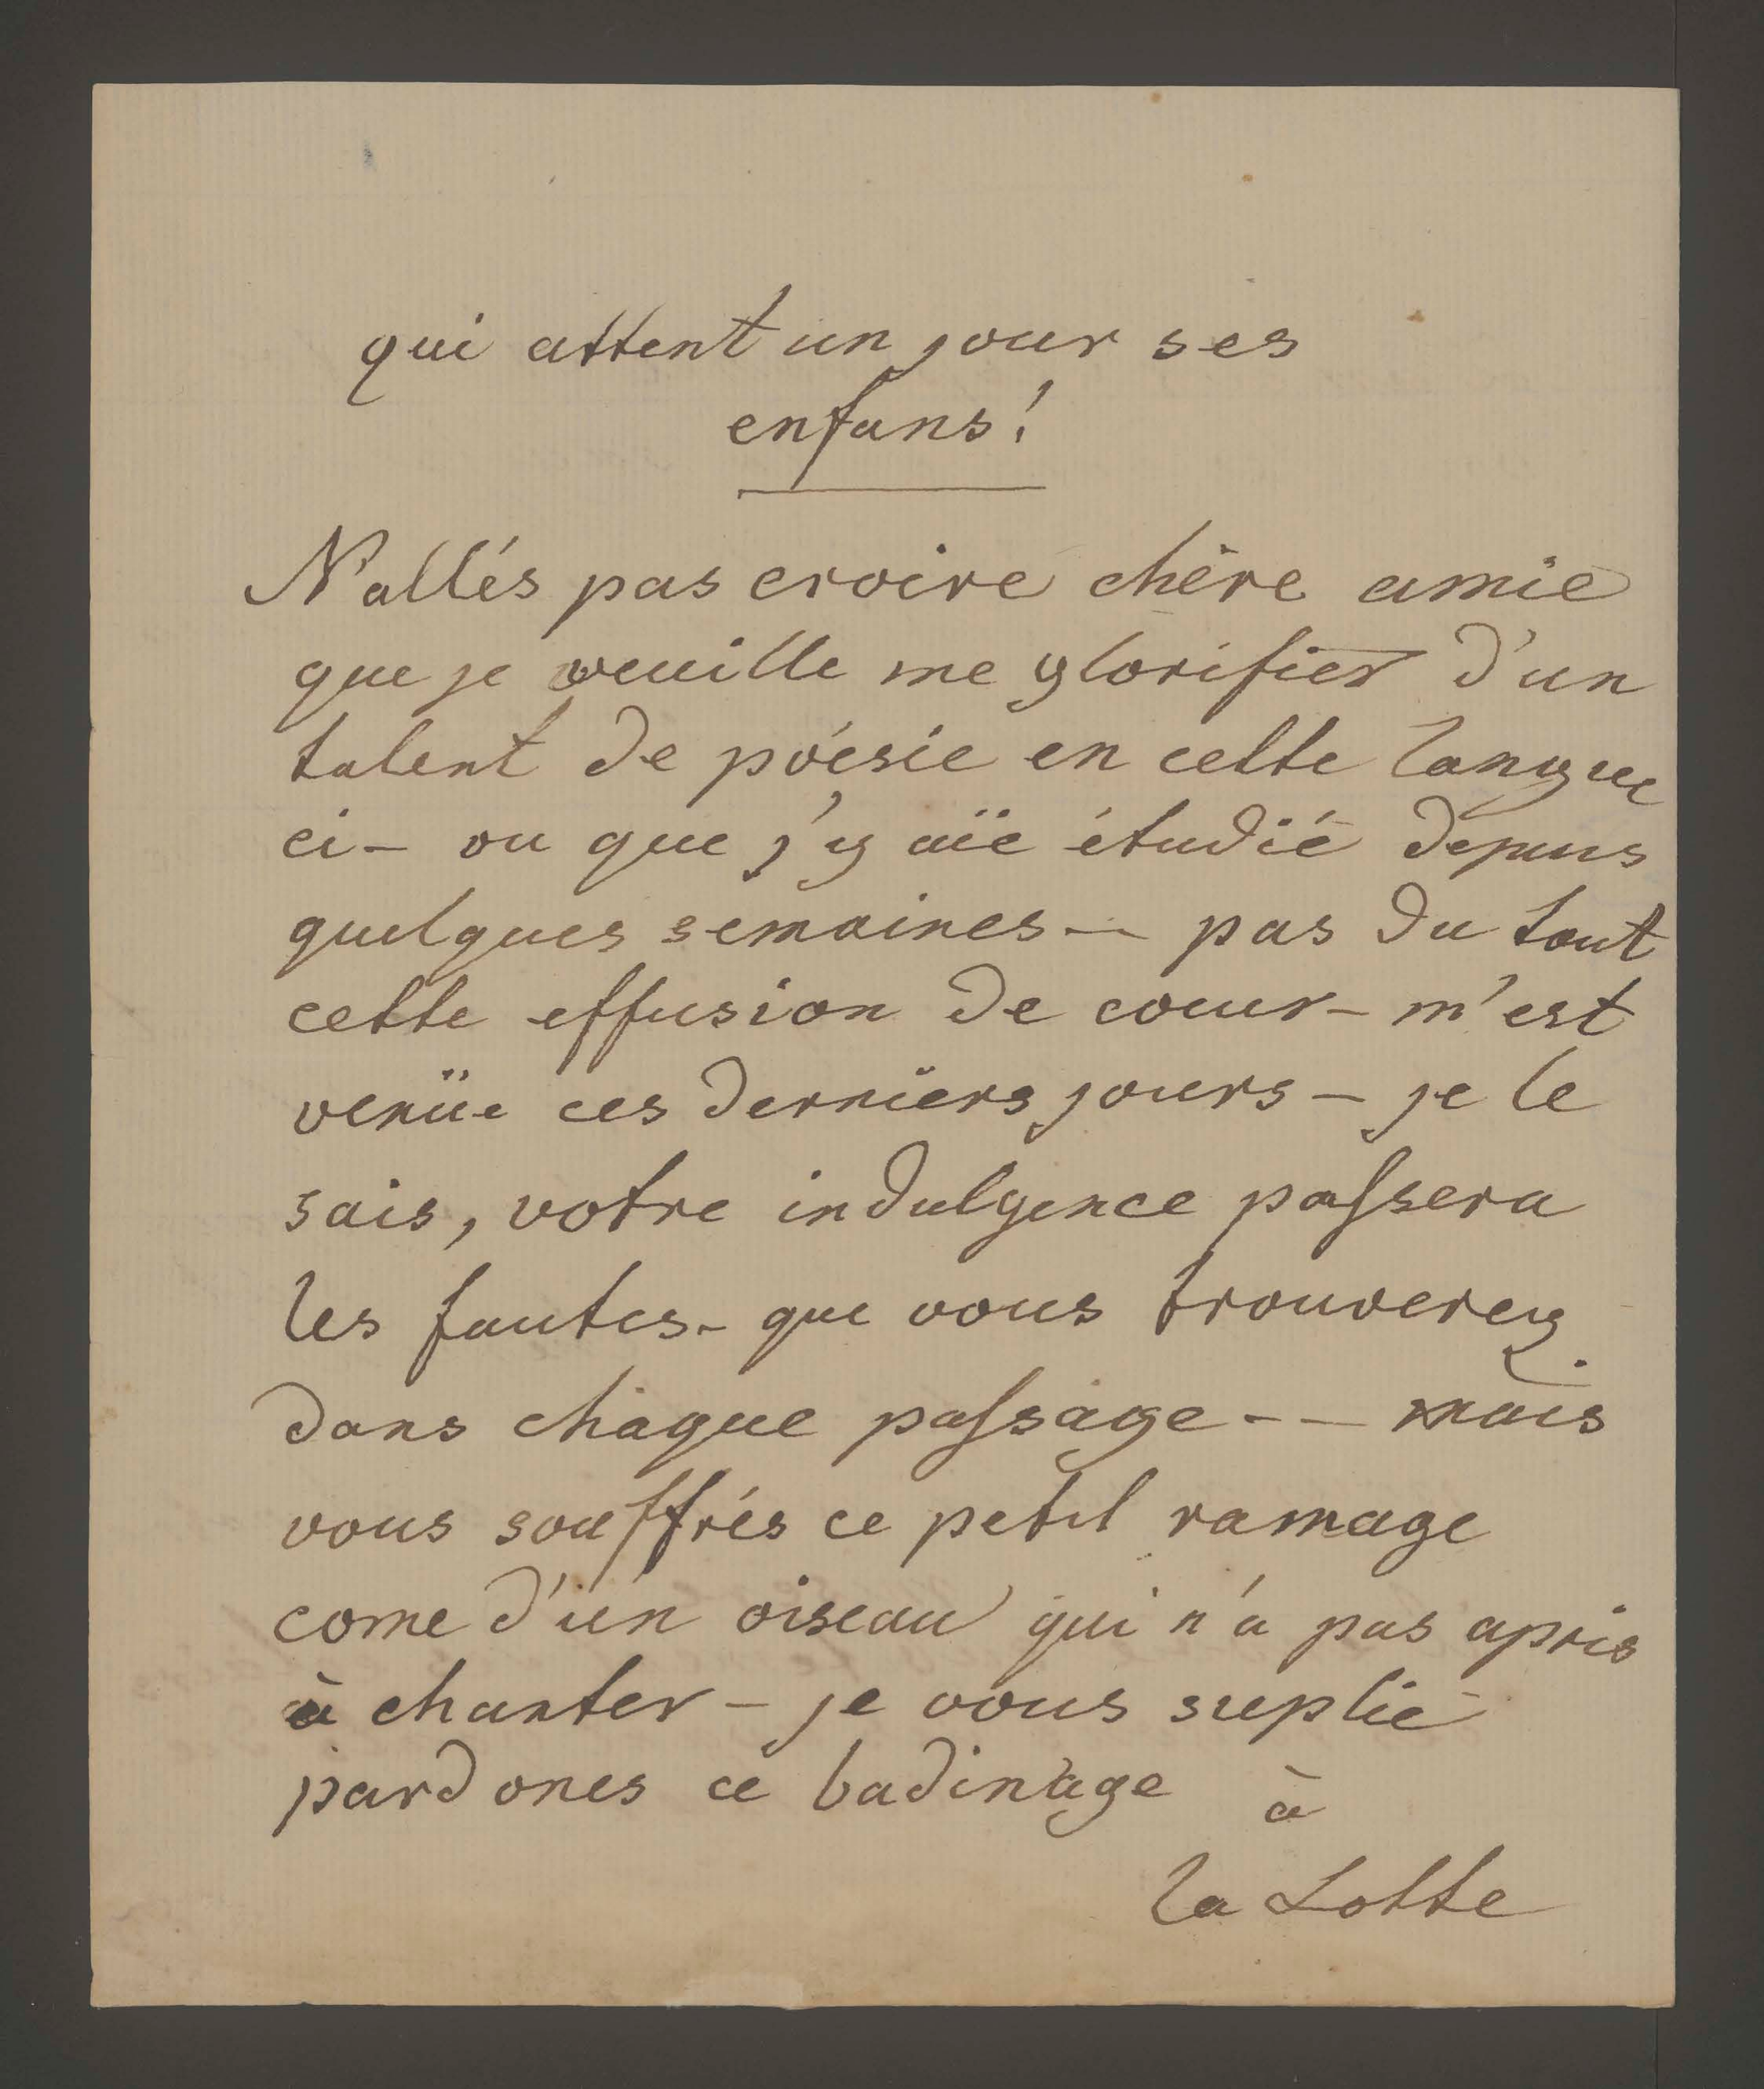 qui attent un jour ses
enfans!
N'allés pas croire chêre amie
que je veuille me glorifier d'un
talent de poésie en cette langue
ci – ou que j'y aïe étudié depuis
quelques semaines – pas du tout
cette effusion de coeur – m'est
venüe ces derniers jours – je le
sais, votre indulgence passera
les fautes – que vous trouverez
dans chaque passage – – mais
vous souffrés ce petit ramage
come d'un oiseau qui n'a pas apris
à chanter – je vous suplie
pardones ce badinage à
la Lotte